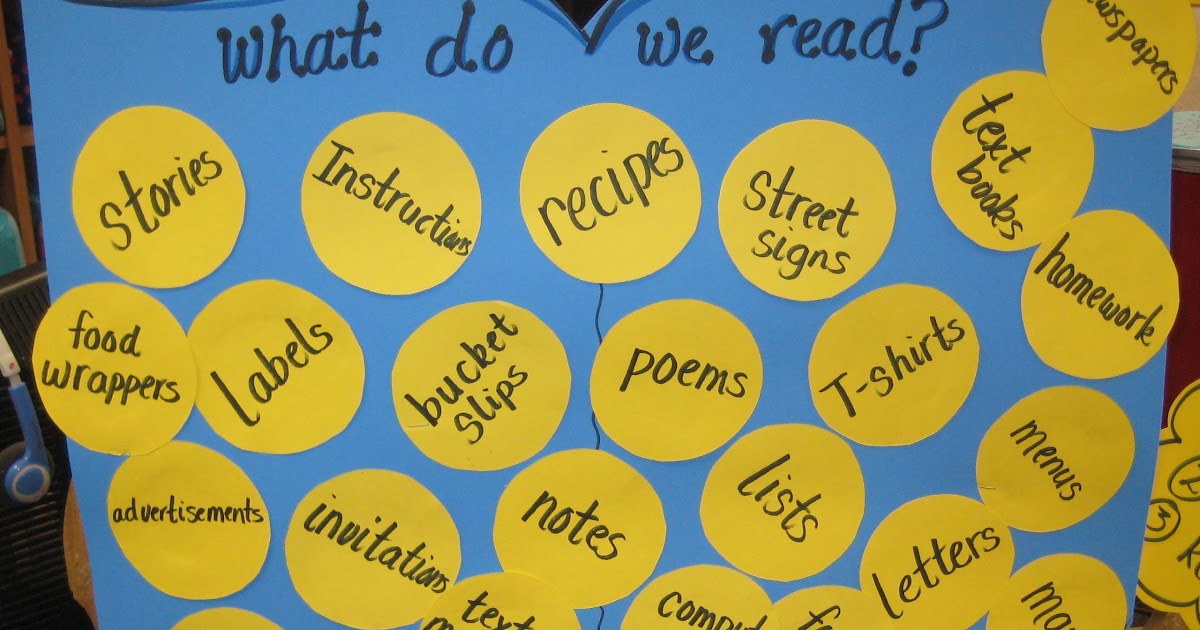 What do we read?
newspapers
text
books
stories
Instructions
recipes
Street
signs
homework
food
wrappers
Labels
bucket
slips
poems
T-shirts
menus
advertisements
invitations
notes
lists
letters
text